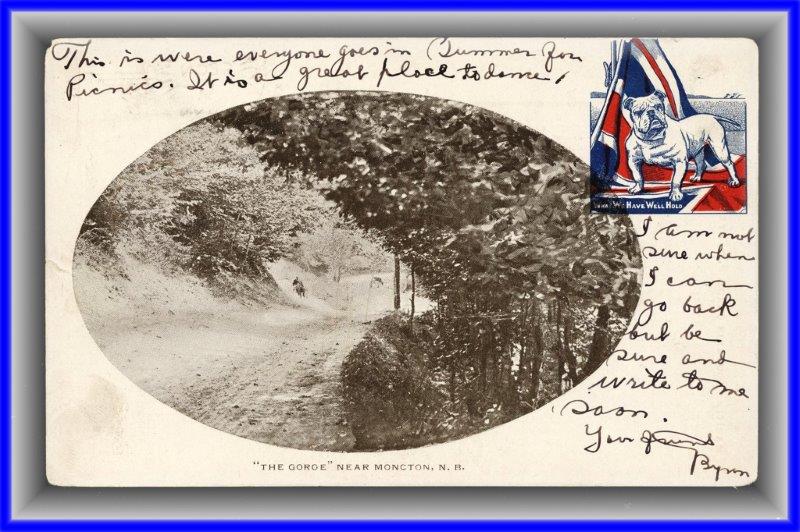 This is were everyone goes in Summer for
Picnics. It is a great place to dance!
WHAT WE HAVE WELL HOLD
I am not
sure when
I can
go back
but be
sure and
write to me
soon.
Your friend
Bynn
"THE GORGE" NEAR MONCTON, N. B.